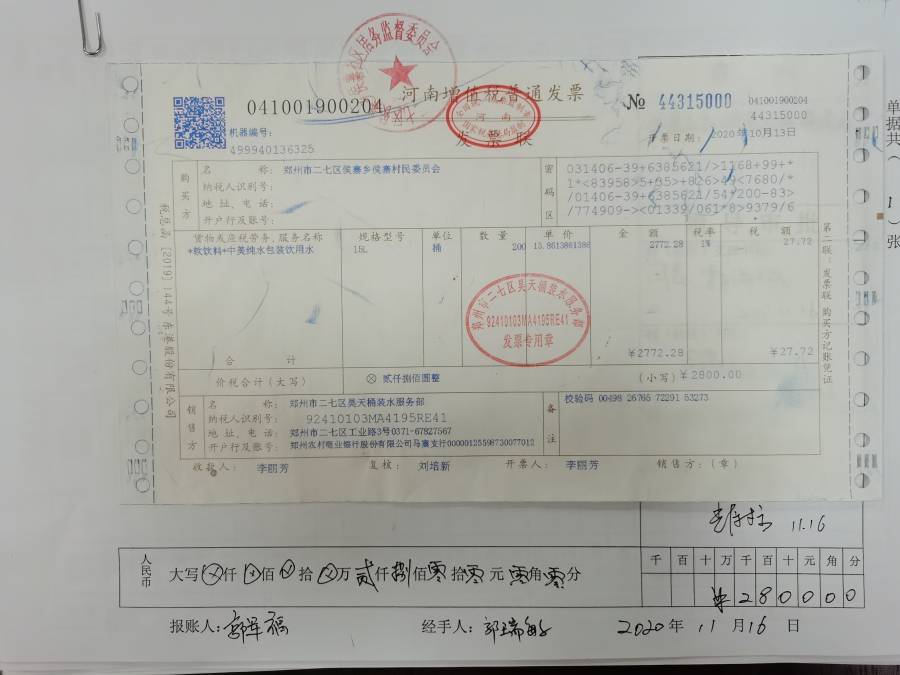 居务监督委员会
041001900204
河南增值税普通发票
发票联
№ 44315000
041001900204
44315000
机器编号:
499940136325
开票日期: 2020年10月13日
购买方
名 称: 郑州市二七区侯寨乡侯寨村民委员会
纳税人识别号:
地 址、电 话:
开户行及账号:
密码区
031406-39+6385621/>1168+99+*
1*<83958>5+35>+826>49<7680/*
/01406-39+6385621/54*200-83>
/774909-><01339/061*8>9379/6
货物或应税劳务、服务名称 规格型号 单位 数 量 单 价 金 额 税率 税 额
*软饮料*中美纯水包装饮用水 18L 桶 200 13.8613861386 2772.28 1% 27.72
合 计 ¥2772.28 ¥27.72
价税合计（大写） ⊗ 贰仟捌佰圆整 （小写）¥2800.00
郑州市二七区昊天桶装水服务部
92410103MA4195RE41
发票专用章
销售方
名 称: 郑州市二七区昊天桶装水服务部
纳税人识别号: 92410103MA4195RE41
地 址、电 话: 郑州市二七区工业路3号0371-67827567
开户行及账号: 郑州农村商业银行股份有限公司马寨支行00000125598730077012
备注
校验码 00498 26765 72291 53273
收款人: 李丽芳 复核: 刘培新 开票人: 李丽芳 销售方:（章）
税总函[2019]144号东港股份有限公司
第二联：发票联 购买方记账凭证
单据共（ 1 ）张
11.16
人民币
大写⊗仟⊗佰⊗拾⊗万贰仟捌佰零拾零元零角零分
千 百 十 万 千 百 十 元 角 分
¥ 2 8 0 0 0 0
报账人: 郭军福 经手人: 郭瑞敏 2020年 11月16日